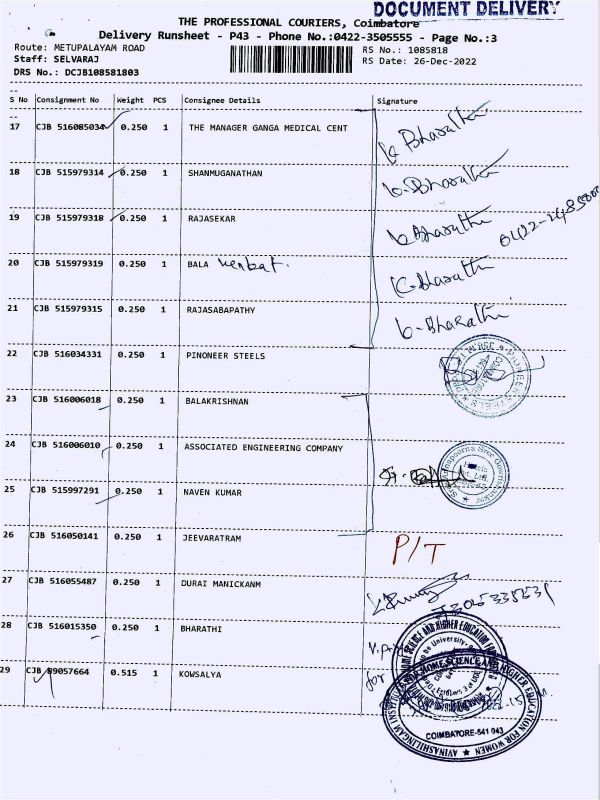 DOCUMENT DELIVERY
THE PROFESSIONAL COURIERS, Coimbatore
Delivery Runsheet - P43 - Phone No.:0422-3505555 - Page No.:3
Route: METUPALAYAM ROAD RS No.: 1085818
Staff: SELVARAJ RS Date: 26-Dec-2022
DRS No.: DCJB108581803
S No Consignment No Weight PCS Consignee Details Signature
17 CJB 516085034 0.250 1 THE MANAGER GANGA MEDICAL CENT
18 CJB 515979314 0.250 1 SHANMUGANATHAN
19 CJB 515979318 0.250 1 RAJASEKAR
20 CJB 515979319 0.250 1 BALA
21 CJB 515979315 0.250 1 RAJASABAPATHY
22 CJB 516034331 0.250 1 PINONEER STEELS
23 CJB 516006018 0.250 1 BALAKRISHNAN
24 CJB 516006010 0.250 1 ASSOCIATED ENGINEERING COMPANY
25 CJB 515997291 0.250 1 NAVEN KUMAR
26 CJB 516050141 0.250 1 JEEVARATRAM P/T
27 CJB 516055487 0.250 1 DURAI MANICKANM
28 CJB 516015350 0.250 1 BHARATHI
29 CJB 89057664 0.515 1 KOWSALYA
for
COIMBATORE-641 043